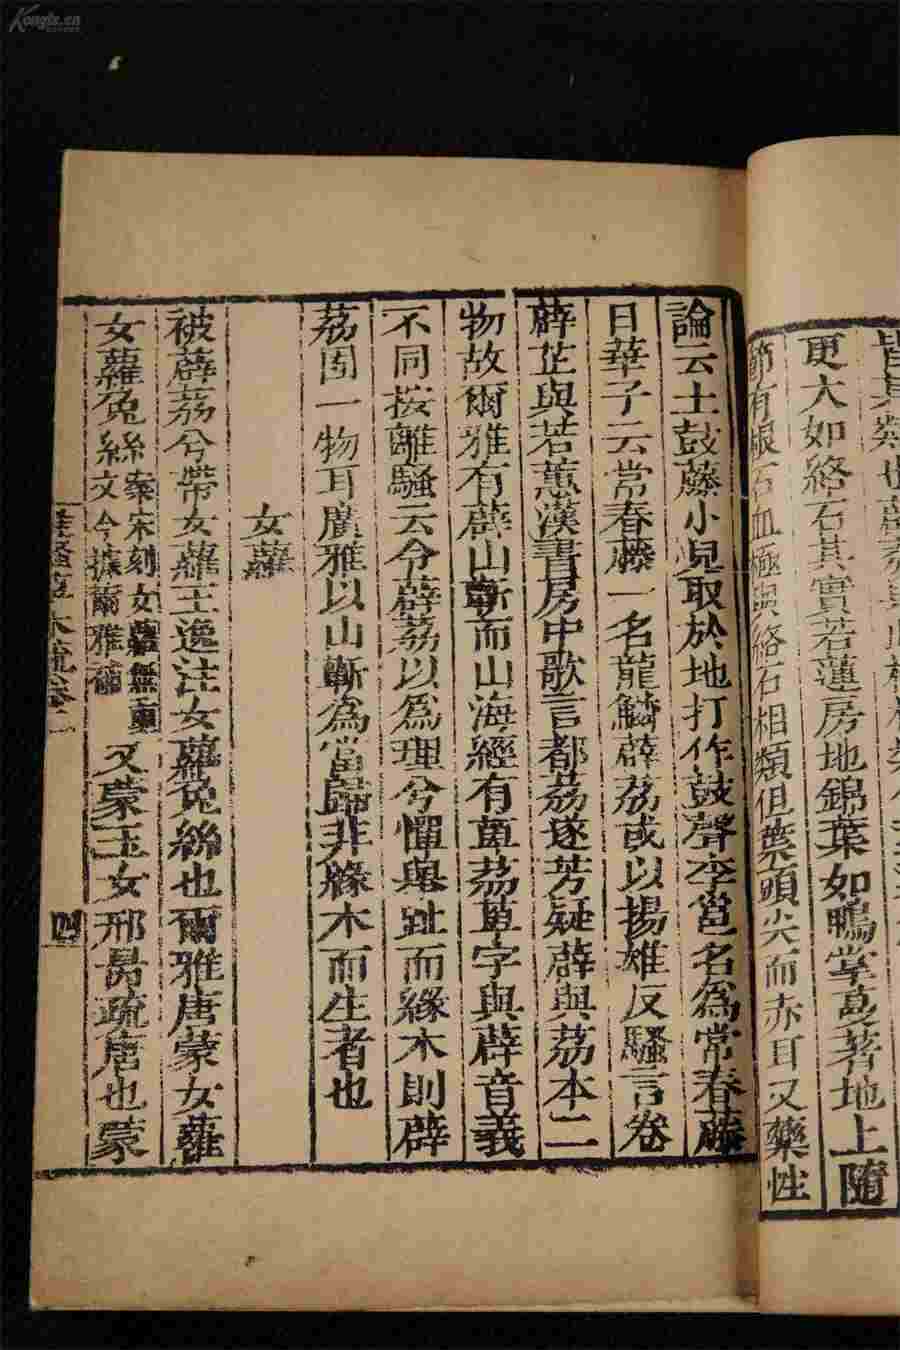 更大如絡石其實若蓮房地錦葉如鴨掌蔓著地上隨
節有根石血極與絡石相類但葉頭尖而赤耳又藥性
論云土鼓藤小兒取於地打作鼓聲李邕名為常春藤
日華子云常春藤一名龍鱗薜荔或以揚雄反騷言卷
薜芷與若蕙漢書房中歌言都荔遂芳疑薜與荔本二
物故爾雅有薜山蘄而山海經有萆荔萆字與薜音義
不同按離騷云令薜荔以為理兮憚舉趾而緣木則薜
荔固一物耳廣雅以山蘄為當歸非緣木而生者也
女蘿
被薜荔兮帶女蘿王逸注女蘿兔絲也爾雅唐蒙女蘿
女蘿兔絲泰宋刻女蘿無重文今據爾雅補又蒙玉女邢昺疏唐也蒙
離騷草木疏卷二
四
Kongfz.cn